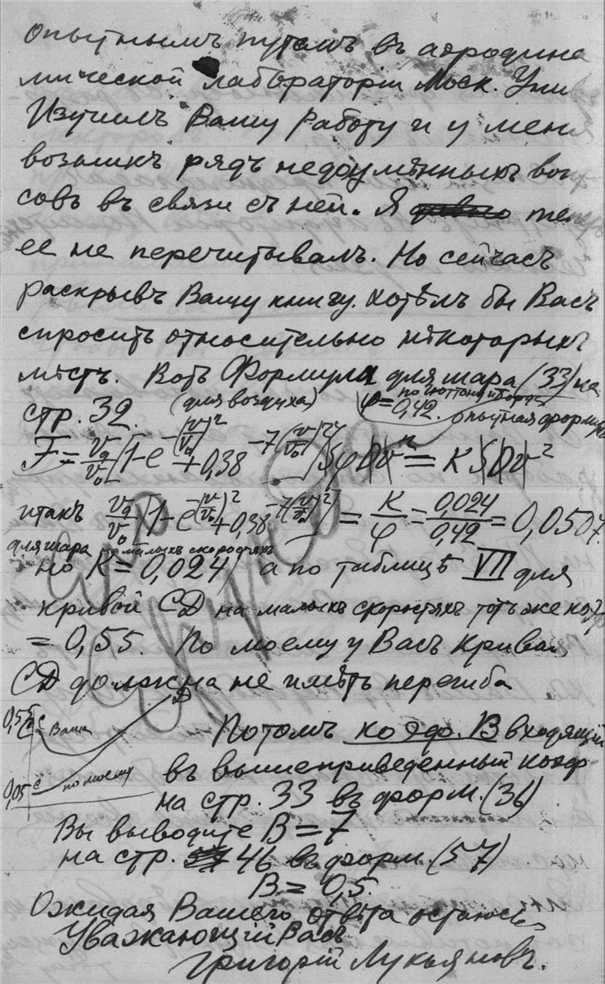 опытнымъ путемъ въ аэродина
мической лабораторiи Моск. Унив
Изучилъ Вашу работу и у меня
возникъ рядъ недоумѣнныхъ воп
совъ въ связи съ ней. Я
ее не перечитывалъ. Но сейчасъ
раскрывъ Вашу книгу. хотѣлъ бы Васъ
спросить относительно нѣкоторыхъ
мѣстъ. Вотъ Формула для шара (33) на
стр. 32. (для воздуха) φ=0,42. опытная форму
итакъ = K/φ = 0,024/0,42 = 0,0507
для шара при малыхъ скоростяхъ
но K = 0,024 а по таблицѣ VII для
кривой СD на малыхъ скоростяхъ тотъ же
= 0,55. По моему у Васъ кривая
СD должна не имѣть перегиба
0,55 C Ваша D
Потомъ коэф. B входящiй
0,05 C по моему
въ вышеприведенный коэф
на стр. 33 въ форм. (36)
Вы выводите B = 7
на стр. 46 въ форм. (57)
B = 0,5.
Ожидая Вашего отвѣта остаюсь
Уважающiй Васъ
Григорiй Лукьяновъ.